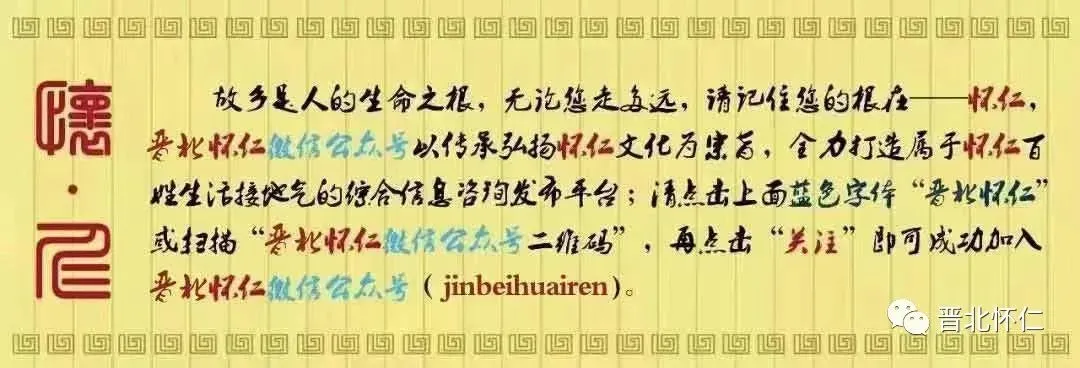 懷·仁
故乡是人的生命之根，无论您走多远，请记住您的根在——怀仁，
晋北怀仁微信公众号以传承弘扬怀仁文化为宗旨，全力打造属于怀仁百
姓生活接地气的综合信息咨询发布平台；请点击上面蓝色字体“晋北怀仁”
或扫描“晋北怀仁微信公众号二维码”，再点击“关注”即可成功加入
晋北怀仁微信公众号（jinbeihuairen）。
晋北怀仁